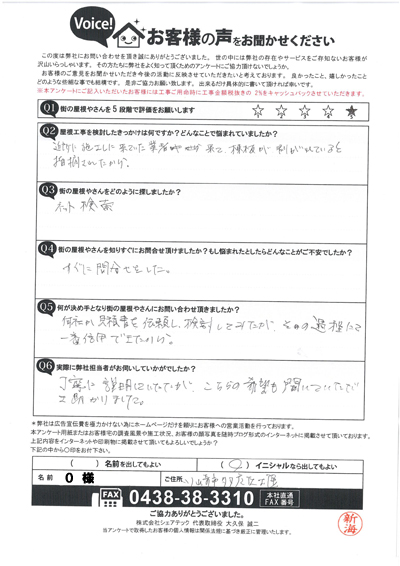 Voice!
お客様の声をお聞かせください
この度は弊社にお問い合わせを頂き誠にありがとうございました。世の中には弊社の存在やサービスをご存知ないお客様が
沢山いらっしゃいます。その方たちに弊社をよく知って頂くためのアンケートにご協力頂けないでしょうか。
お客様のご意見をお聞かせいただき今後の活動に反映させていただきたいと考えております。良かったこと、嬉しかったこと
どのような些細な事でも結構です。是非ご協力お願い致します。出来るだけ具体的に書いて頂ければ幸いです。
※本アンケートにご記入いただいたお客様には工事ご用命時に工事金額税抜きの2%をキャッシュバックさせていただきます。
Q1 街の屋根やさんを5段階で評価をお願いします
Q2 屋根工事を検討したきっかけは何ですか?どんなことで悩まれていましたか?
近所に施工に来ていた業者が来て、棟板が剥がれていると
指摘されたから。
Q3 街の屋根やさんをどのように探しましたか?
ネット検索
Q4 街の屋根やさんを知りすぐにお問合せ頂けましたか?もし悩まれたとしたらどんなことがご不安でしたか?
すぐに問合せをした。
Q5 何が決め手となり街の屋根やさんにお問い合わせ頂きましたか?
何社か見積書を依頼し、検討してみたが、その過程にて
一番信用できたから。
Q6 実際に弊社担当者がお伺いしていかがでしたか?
丁寧に説明していただき、こちらの希望も聞いていただいて
助かりました。
*弊社は広告宣伝費を極力かけない為にホームページだけを頼りにお客様への営業活動を行っております。
本アンケート用紙またはお客様宅の調査風景や施工状況、お客様の顔写真を随時ブログ形式のインターネットに掲載させて頂いております。
上記内容をインターネットや印刷物に掲載させて頂いてもよろしいでしょうか?
下記の中から〇印をお付け下さい。
( ) 名前を出してもよい (〇) イニシャルなら出してもよい
名前 O 様 ご住所
FAX 0438-38-3310 本社直通 FAX番号
ご協力ありがとうございました。
株式会社シェアテック 代表取締役 大久保 誠二
当アンケートで取得したお客様の個人情報は関係法規に基づき厳正に管理いたします。
新海